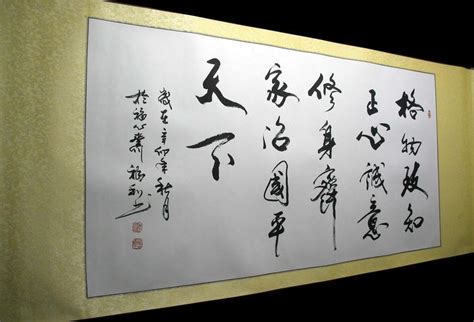 格物致知
正心誠意
修身齊
家治國平
天下
歲在辛卯年秋月
於福心齋